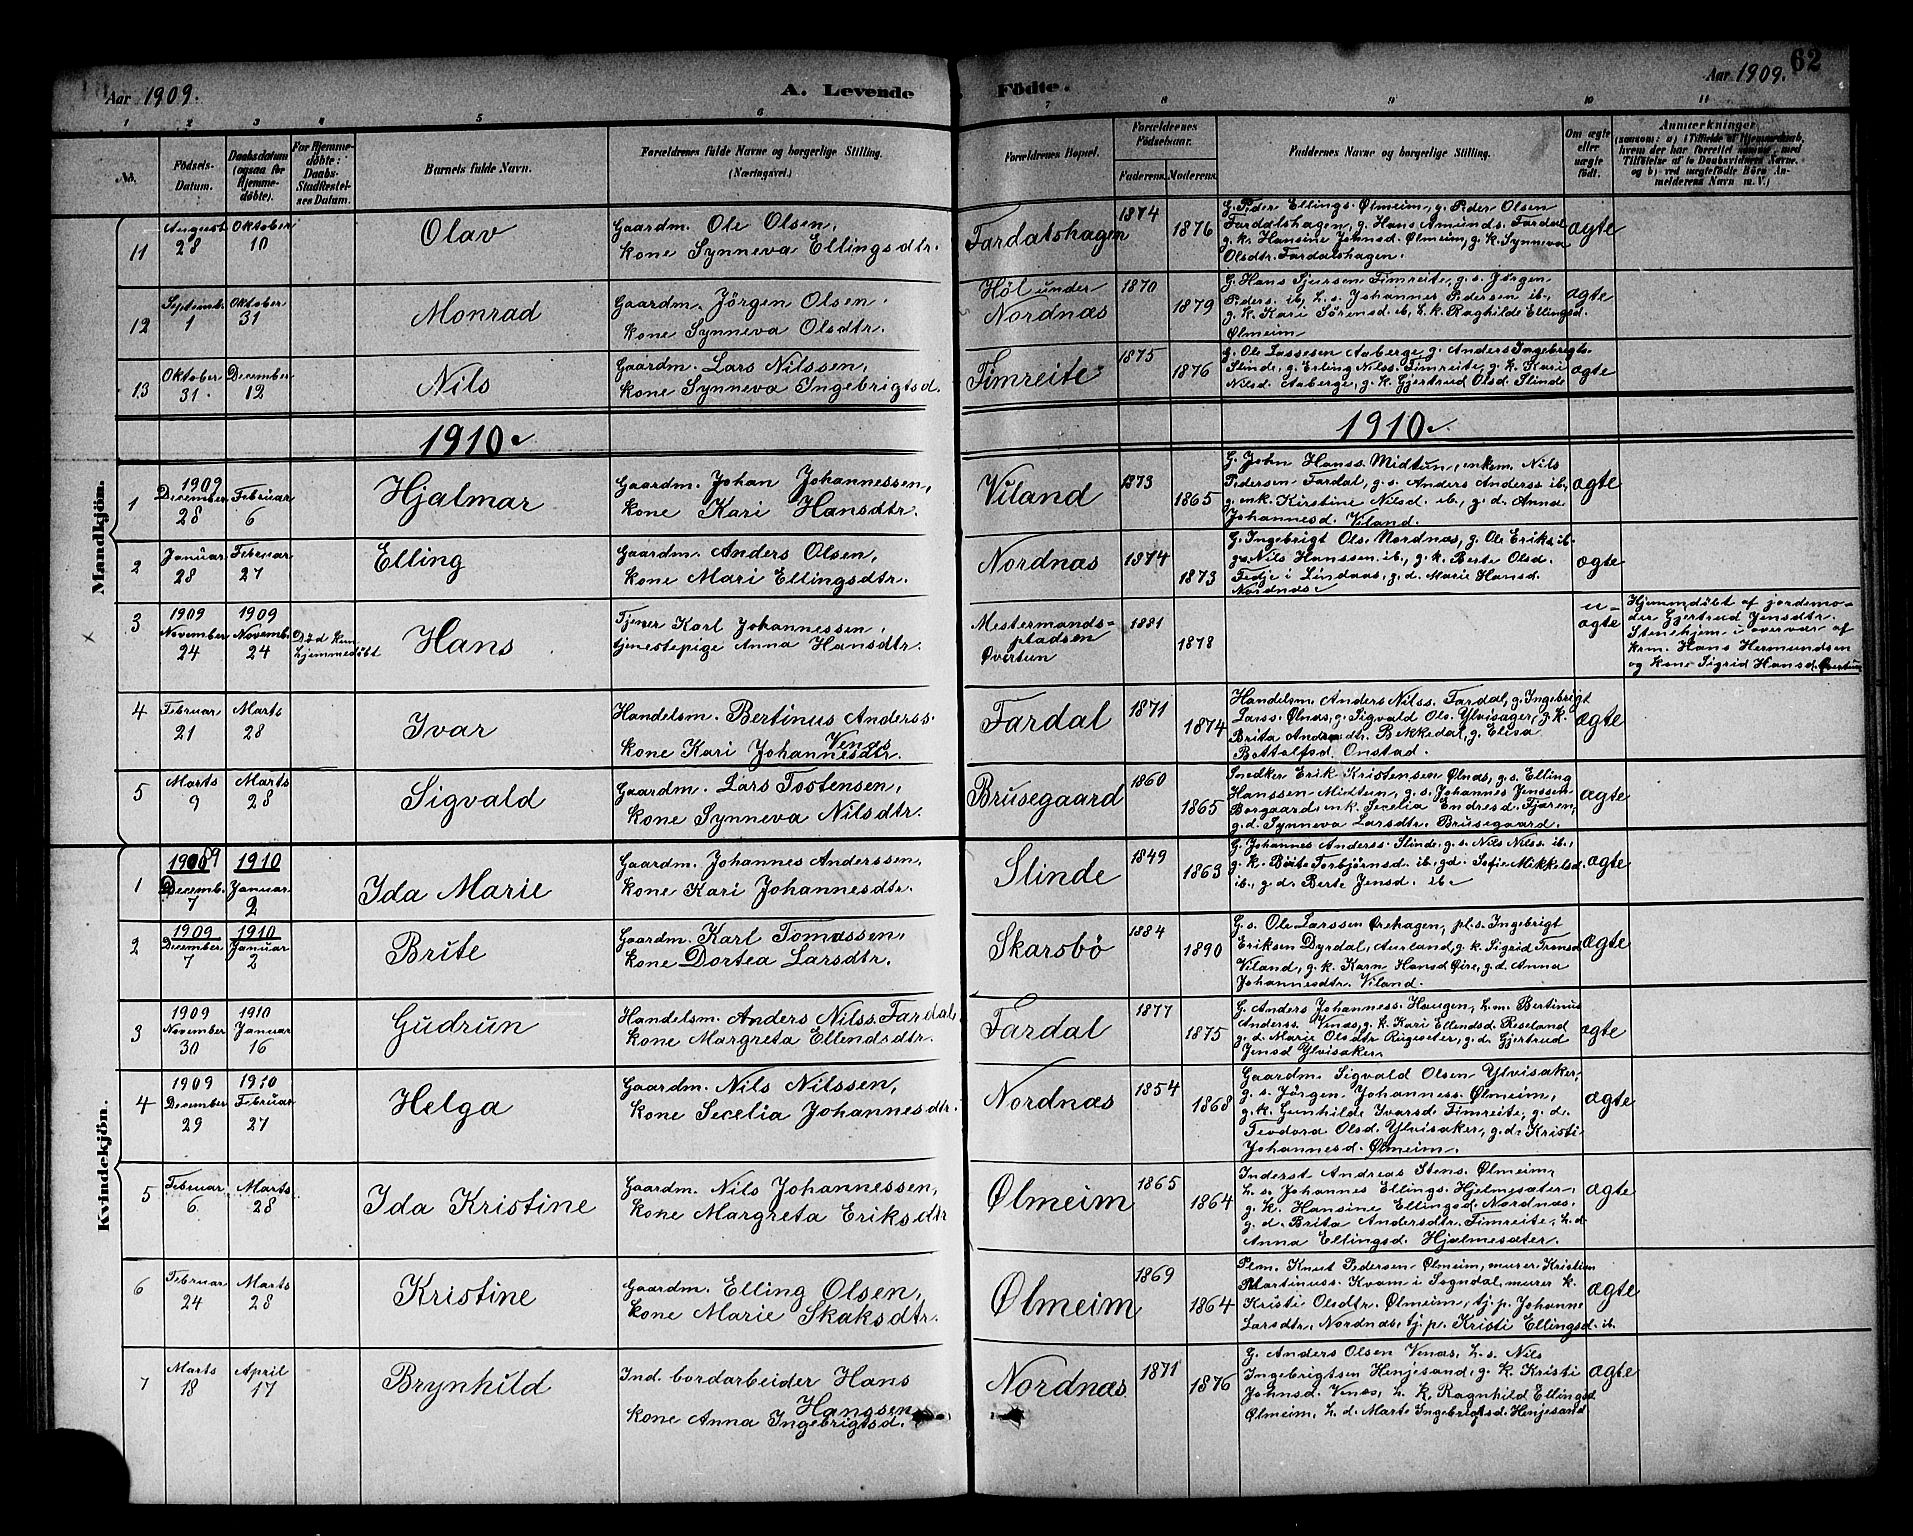 Aar 1909.
A. Levende
Fødte.
Aar 1909.
62
1 2 3 4 5 6 7 8 9 10 11
No.
Fødsels-
Datum.
Daabsdatum
(ogsaa for
Hjemme-
døbte).
For Hjemme-
døbte:
Daabs-
Stadfæstel-
ses Datum.
Barnets fulde Navn.
Forældrenes fulde Navne og borgerlige Stilling.
(Næringsvei.)
Forældrenes Bopæl.
Forældrenes
Fødselsaar.
Faderens. Moderens.
Faddernes Navne og borgerlige Stilling.
Om ægte
eller
uægte
født.
Anmærkninger
(saasom: a) i Tilfælde af Hjemmedaab,
hvem der har forrettet samme, med
Tilføielse af to Daabsvidners Navne,
og b) ved uægtefødte Børn An-
melderens Navn m. V.)
Mandkjön.
11
August
28
Oktober
10
Olav
Gaardm. Ole Olsen,
kone Synneva Ellingsdtr.
Fardalshagen
1874
1876
G. Peder Ellings. Ølmeim, g. Peder Olsen
Fardalshagen, g. Hans Amunds. Fardal
g. k. Hansine Johnsd. Ølmeim, g. k. Synneva
Olsdtr. Fardalshagen.
ægte
12
Septemb.
1
Oktober
31
Monrad
Gaardm. Jörgen Olsen.
kone Synneva Olsdtr.
Høl under
Nordnæs
1870
1879
G. Hans Sjursen Timreite, g. s. Jörgen
Peders. ib, L. s. Johannes Pedersen ib.,
g. k. Kari Sörensd. ib, L. k. Raghilde Ellingsd.
Ølmeim
ægte
13
Oktober
31.
December
12
Nils
Gaardm. Lars Nilssen,
kone Synneva Ingebrigtsd.
Timreite
1875
1876
G. Ole Lassesen Aaberge, g. Anders Ingebrigts.
Slinde, g. Erling Nilss. Timreite, g. k. Kari
Nilsd. Aaberge, g. k. Gjertrud Olsd. Slinde
ægte
1910.
1910.
1
1909
December
28
Februar
6
Hjalmar
Gaardm. Johan Johannessen,
kone Kari Hansdtr.
Viland
1873
1865
G. John Hanss. Midtun, enkem. Nils
Pedersen Fardal, g. s. Anders Anderss ib,
g. enk. Kirstine Nilsd. ib., g. d. Anna
Johannesd. Viland.
ægte
2
Januar
28
Februar
27
Elling
Gaardm. Anders Olsen,
kone Mari Ellingsdtr.
Nordnæs
1874
1873
G. Ingebrigt Ols. Nordnæs, g. Ole Eriks. ib.
gs. Nils Hanssen ib., g. k. Berte Olsd.
Fedje i Lindaas, g. d. Marie Hansd.
Nordnæs
ægte
x
3
1909
November
24
1909
Novemb.
24
Død kun
hjemmedøbt
Hans
Tjener Karl Johannessen,
tjenestepige Anna Hansdtr.
Mestermands-
pladsen
Øvertun
1881
1878
u-
ægte
Hjemmdöbt af jordemo-
der Gjertrud Jensdtr.
Stenehjem i overvær af
krm. Hans Hermundsen
og kone Sigrid Hansd. Øvertun
4
Februar
21
Marts
28
Ivar
Handelsm. Bertinus Anderss.
Venæs
kone Kari Johannesdtr.
Fardal
1871
1874
Handelsm. Anders Nilss. Fardal, g. Ingebrigt
Larss. Ølnæs, g. Sigvald Ols. Ylvisager, g. k.
Brita Andreadtr. Bekkedal, g. Elisa
Bottolfsd. Onstad.
ægte
5
Marts
9
Marts
28
Sigvald
Gaardm. Lars Tostensen,
kone Synneva Nilsdtr.
Brusegaard
1860
1865
Snedker Erik Kristensen Ølnæs, g. s. Elling
Hanssen Midtun, g. s. Johannes Jenssen
Borgaard, enk. Secelia Endresd. Fjæren,
g. d. Synneva Larsdtr. Brusegaard.
ægte
Kvindekjön.
1
1909
Decemb.
7
1910
Januar
2
Ida Marie
Gaardm. Johannes Anderssen,
kone Kari Johannesdtr.
Slinde
1849
1863
G. Johannes Anderss. Slinde, g. s. Nils Nilss. ib.,
g. k. Brite Torbjörnsd. ib., gd. Sofie Mikkelsd.
ib., g. d. Berte Jensd. ib.
ægte
2
1909
December
7
1910
Januar
2
Brite
Gaardm. Karl Tomassen,
kone Dortea Larsdtr.
Skarsbö
1884
1890
G. s. Ole Larssen Ørehagen, pl. s. Ingebrigt
Eriksen Dyrdal, Aurland, g. k. Sigrid Tronsd.
Viland, g. k. Karn Hansd Øire, g. d. Anna
Johannesdtr. Viland.
ægte
3
1909
November
30
1910
Januar
16
Gudrun
Handelsm. Anders Nilss. Fardal,
kone Margreta Ellendsdtr.
Fardal
1877
1875
G. Anders Johanness. Haugen, h. m. Bertinus
Anderss. Venæs, g. k. Kari Ellendsd. Reseland
g. d. Marie Olsdtr Rugeseter, g. d. Gjertrud
Jensd Ylvisaker
ægte
4
1909
December
29
1910
Februar
27
Helga
Gaardm. Nils Nilssen,
kone Secelia Johannesdtr.
Nordnæs
1854
1868
Gaardm. Sigvald Olsen Ylvisaker,
g. s. Jørgen Johanness. Ølmeim,
g. k. Gunhilde Ivarsd. Timreite, g. d.
Teodora Olsd. Ylvisaker, g. d. Kristi
Johannesd. Ølmeim.
ægte
5
Februar
6
Marts
28
Ida Kristine
Gaardm. Nils Johannessen,
kone Margreta Eriksdtr
Ølmeim
1865
1864
Inderst Andreas Stens. Ølmeim,
L. s. Johannes Ellings. Hjelmesæter,
g. k. Hansine Ellingsd. Nordnæs,
g. d. Brita Andersdtr. Timreite, L. d.
Anna Ellingsd. Hjælmesæter.
ægte
6
Februar
24
Marts
28
Kristine
Gaardm. Elling Olsen,
kone Marie Skaksdtr.
Ølmeim
1869
1864
Plm. Knut Pedersen Ølmeim, murer Kristian
Martinuss. Kvam i Sogndal, murer k.
Kristi Olsdtr. Ølmeim, tj. p. Johanne
Larsdtr, Nordnæs, tj. p. Kristi Ellingsd. ib.
ægte
7
Marts
18
April
17
Brynhild
Ind. bordarbeider Hans
Hanssen
kone Anna Ingebrigtsd.
Nordnæs
1871
1876
G. Anders Olsen Venæs, L. s. Nils
Ingebrigtsen Henjesand, g. k. Kristi
Johnsd. Venæs, L. k. Ragnhild Ellingsd
Ølmeim, L. d. Marte Ingebrigtsd. Henjesand
ægte